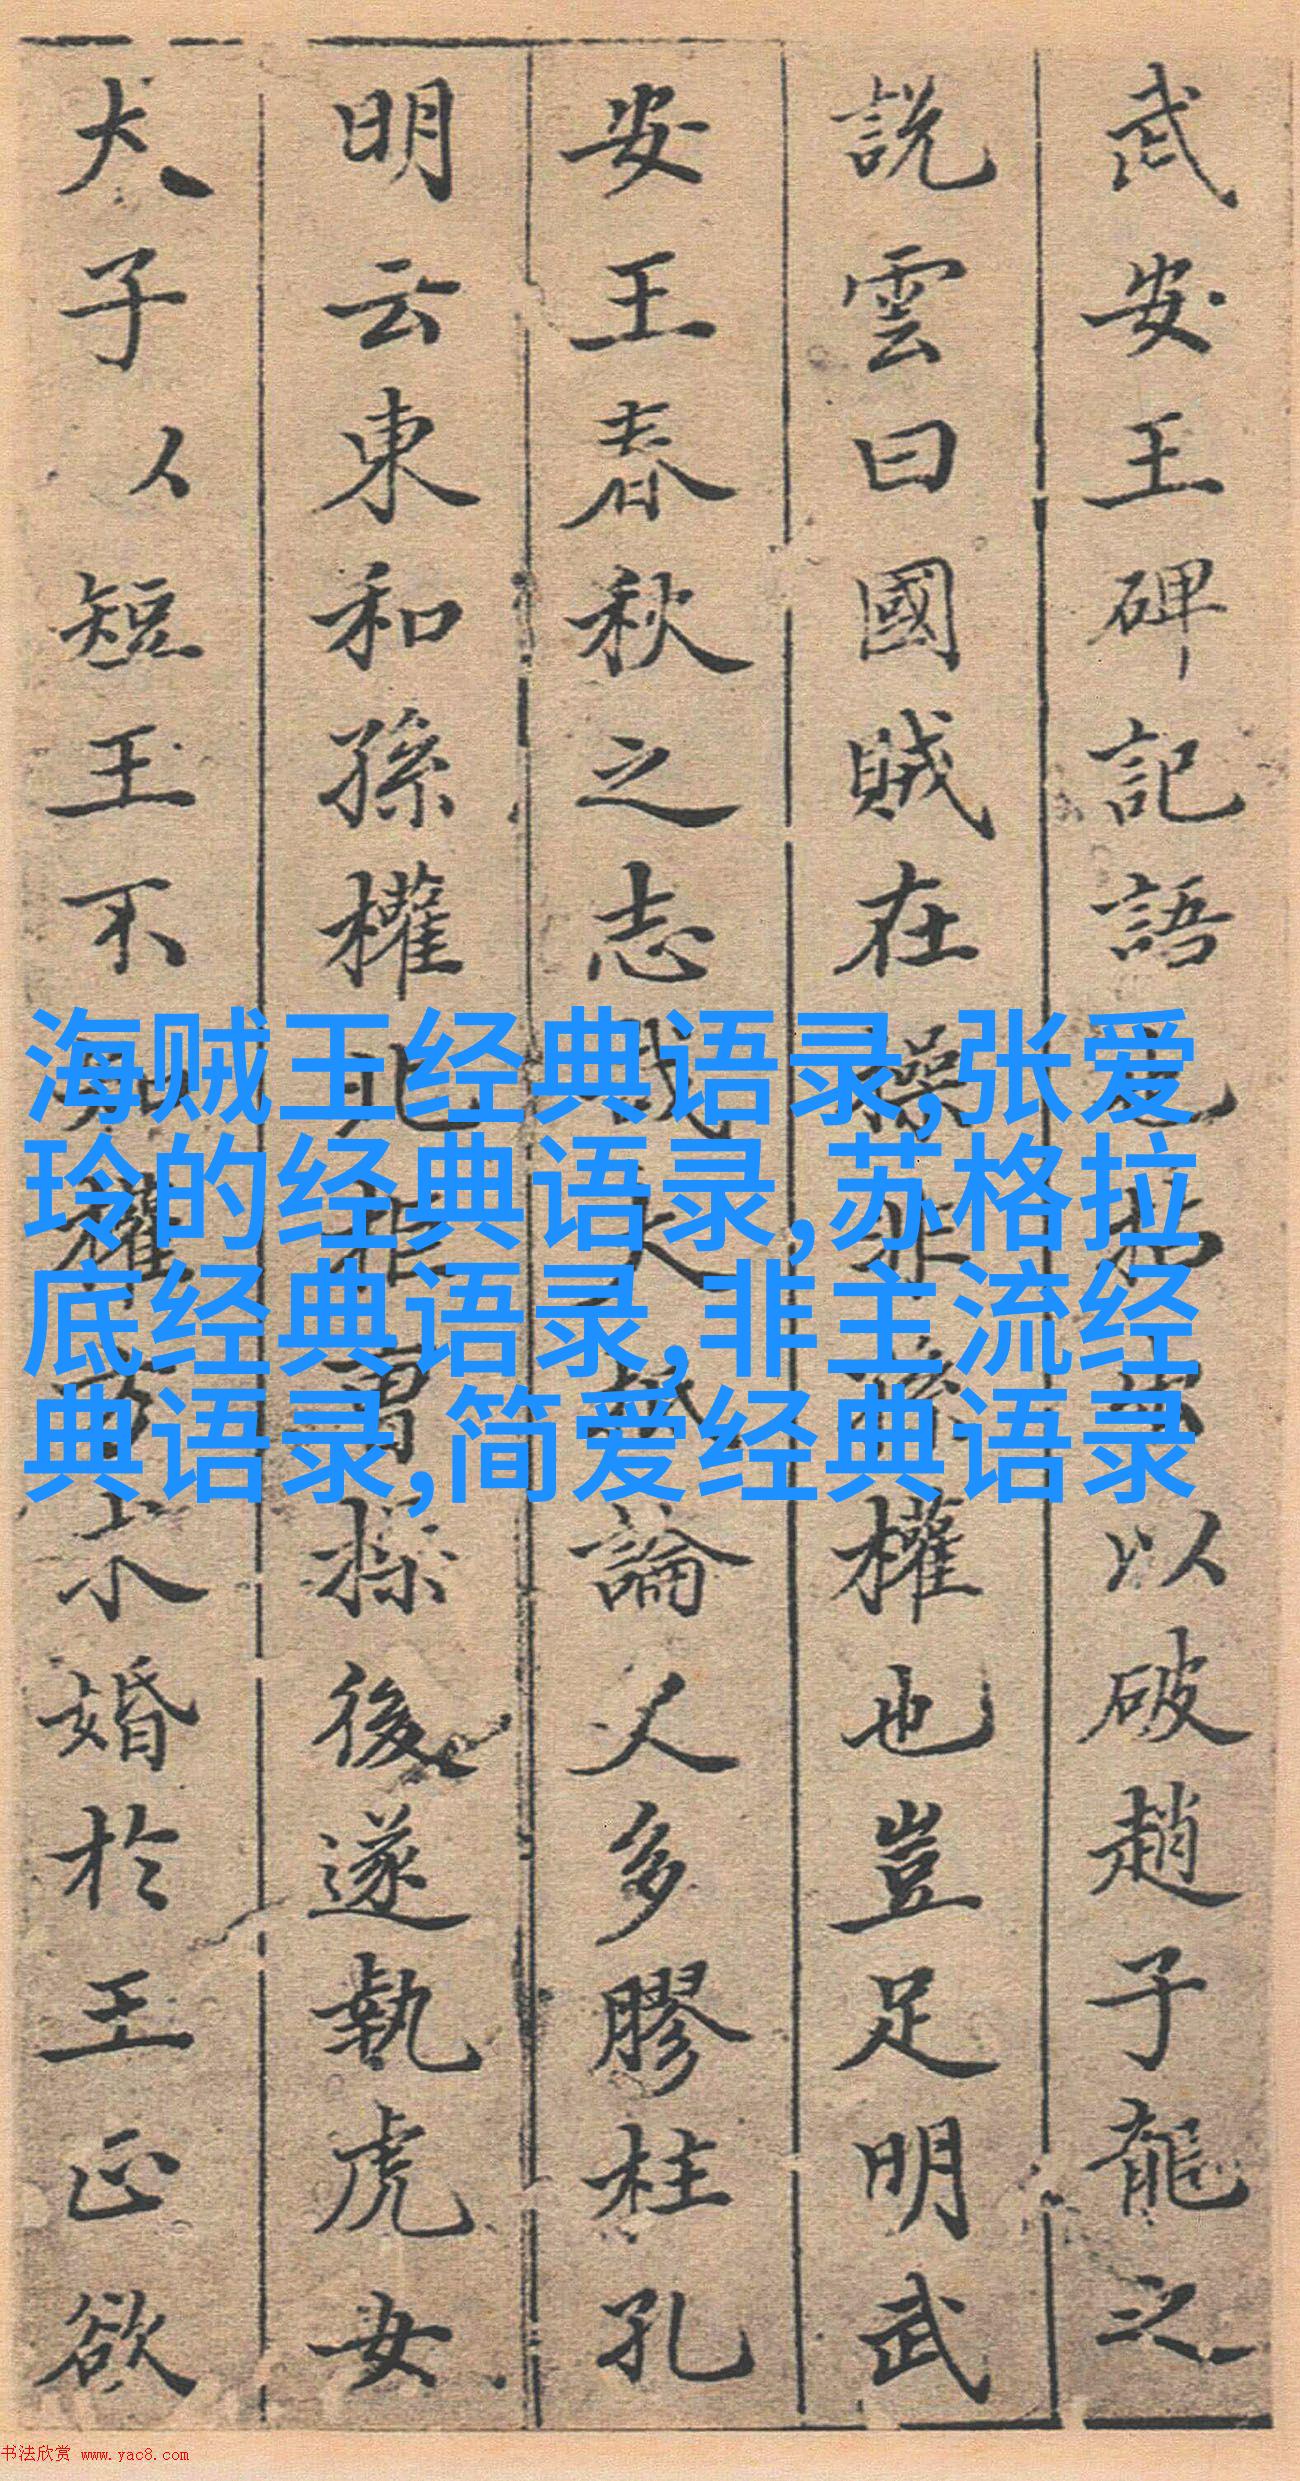 武安王碑記語以破趙子龍之
說雲曰國賊在操非孫權也豈足明武
安王春秋之志哉大抵論人多膠柱孔
明云東和孫權北拒曹操後遂執虎女
大子以短王不知權方求婚於王正欲
海贼王经典语录,张爱
玲的经典语录,苏格拉
底经典语录,非主流经
典语录,简爱经典语录
书法欣赏 www.yac8.com